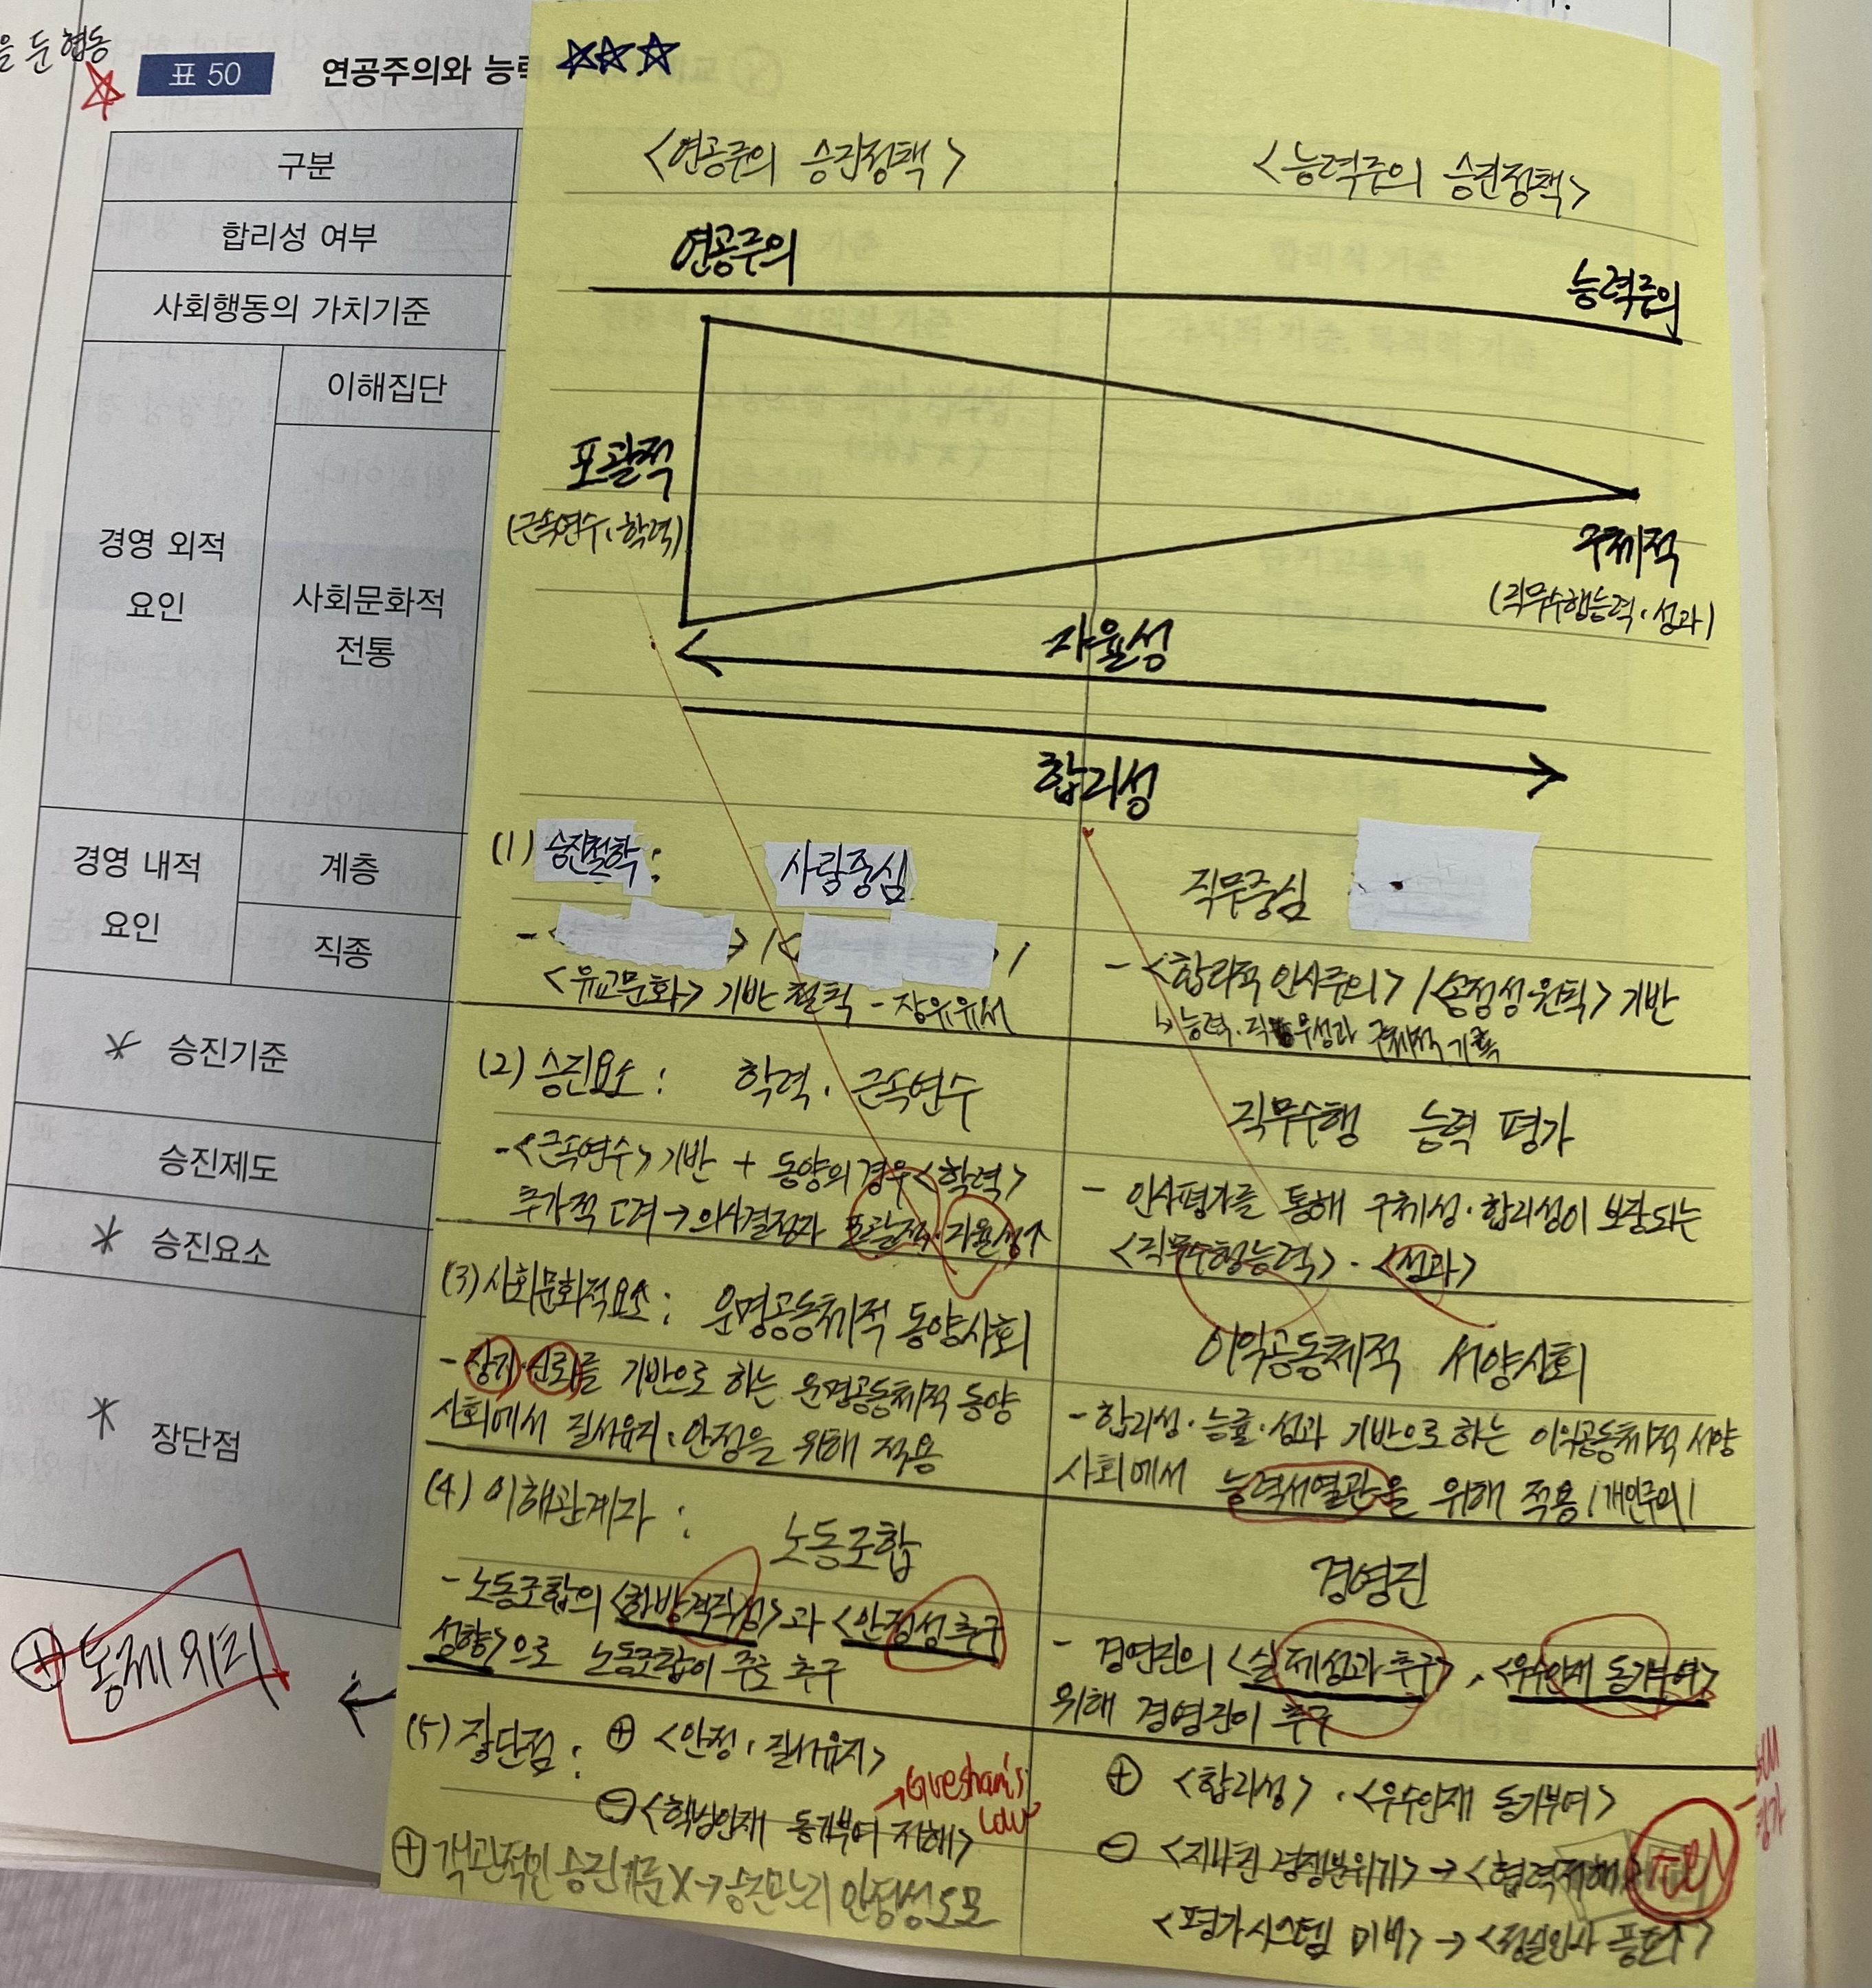 을 둔 협동
표 50 연공주의와 능력
구분
합리성 여부
사회행동의 가치기준
경영 외적
요인
이해집단
사회문화적
전통
경영 내적
요인
계층
직종
승진기준
승진제도
승진요소
장단점
⊕ 통제위리
<연공주의 승진정책> <능력주의 승진정책>
연공주의 능력주의
포괄적
(근속연수·학력)
구체적
(직무수행능력·성과)
자율성
합리성
(1) 승진철학: 사람중심
<유교문화> 기반 철학 - 장유유서
직무중심
- <합리적 인사주의> / <공정성원칙> 기반
↳ 능력·직무성과 구체적 기록
(2) 승진요소: 학력·근속연수
- <근속연수> 기반 + 동양의 경우 <학력>
추가적 고려 → 의사결정자 포괄적·자율성↑
직무수행 능력 평가
- 인사평가를 통해 구체성·합리성이 보장되는
<직무수행능력>·<성과>
(3) 사회문화적요소: 운명공동체적 동양사회
- 장기·신뢰를 기반으로 하는 운명공동체적 동양
사회에서 질서유지·안정을 위해 적용
이익공동체적 서양사회
- 합리성·능률·성과 기반으로 하는 이익공동체적 서양
사회에서 능력서열관을 위해 적용 /개인주의/
(4) 이해관계자: 노동조합
- 노동조합의 <하방경직성>과 <안정성 추구
성향>으로 노동조합이 주로 추구
경영진
- 경영진의 <실제성과 추구>, <우수인재 동기부여>
위해 경영진이 추구
(5) 장단점: ⊕ <안정·질서유지>
⊖ <핵심인재 동기부여 저해> → Gresham's
Law
⊕ 객관적인 승진기준 X → 승진관리 안정성 도모
⊕ <합리성>·<우수인재 동기부여>
⊖ <지나친 경쟁분위기> → <협력저해>
<평가시스템 미비> → <정실인사 풍토↑>
평가